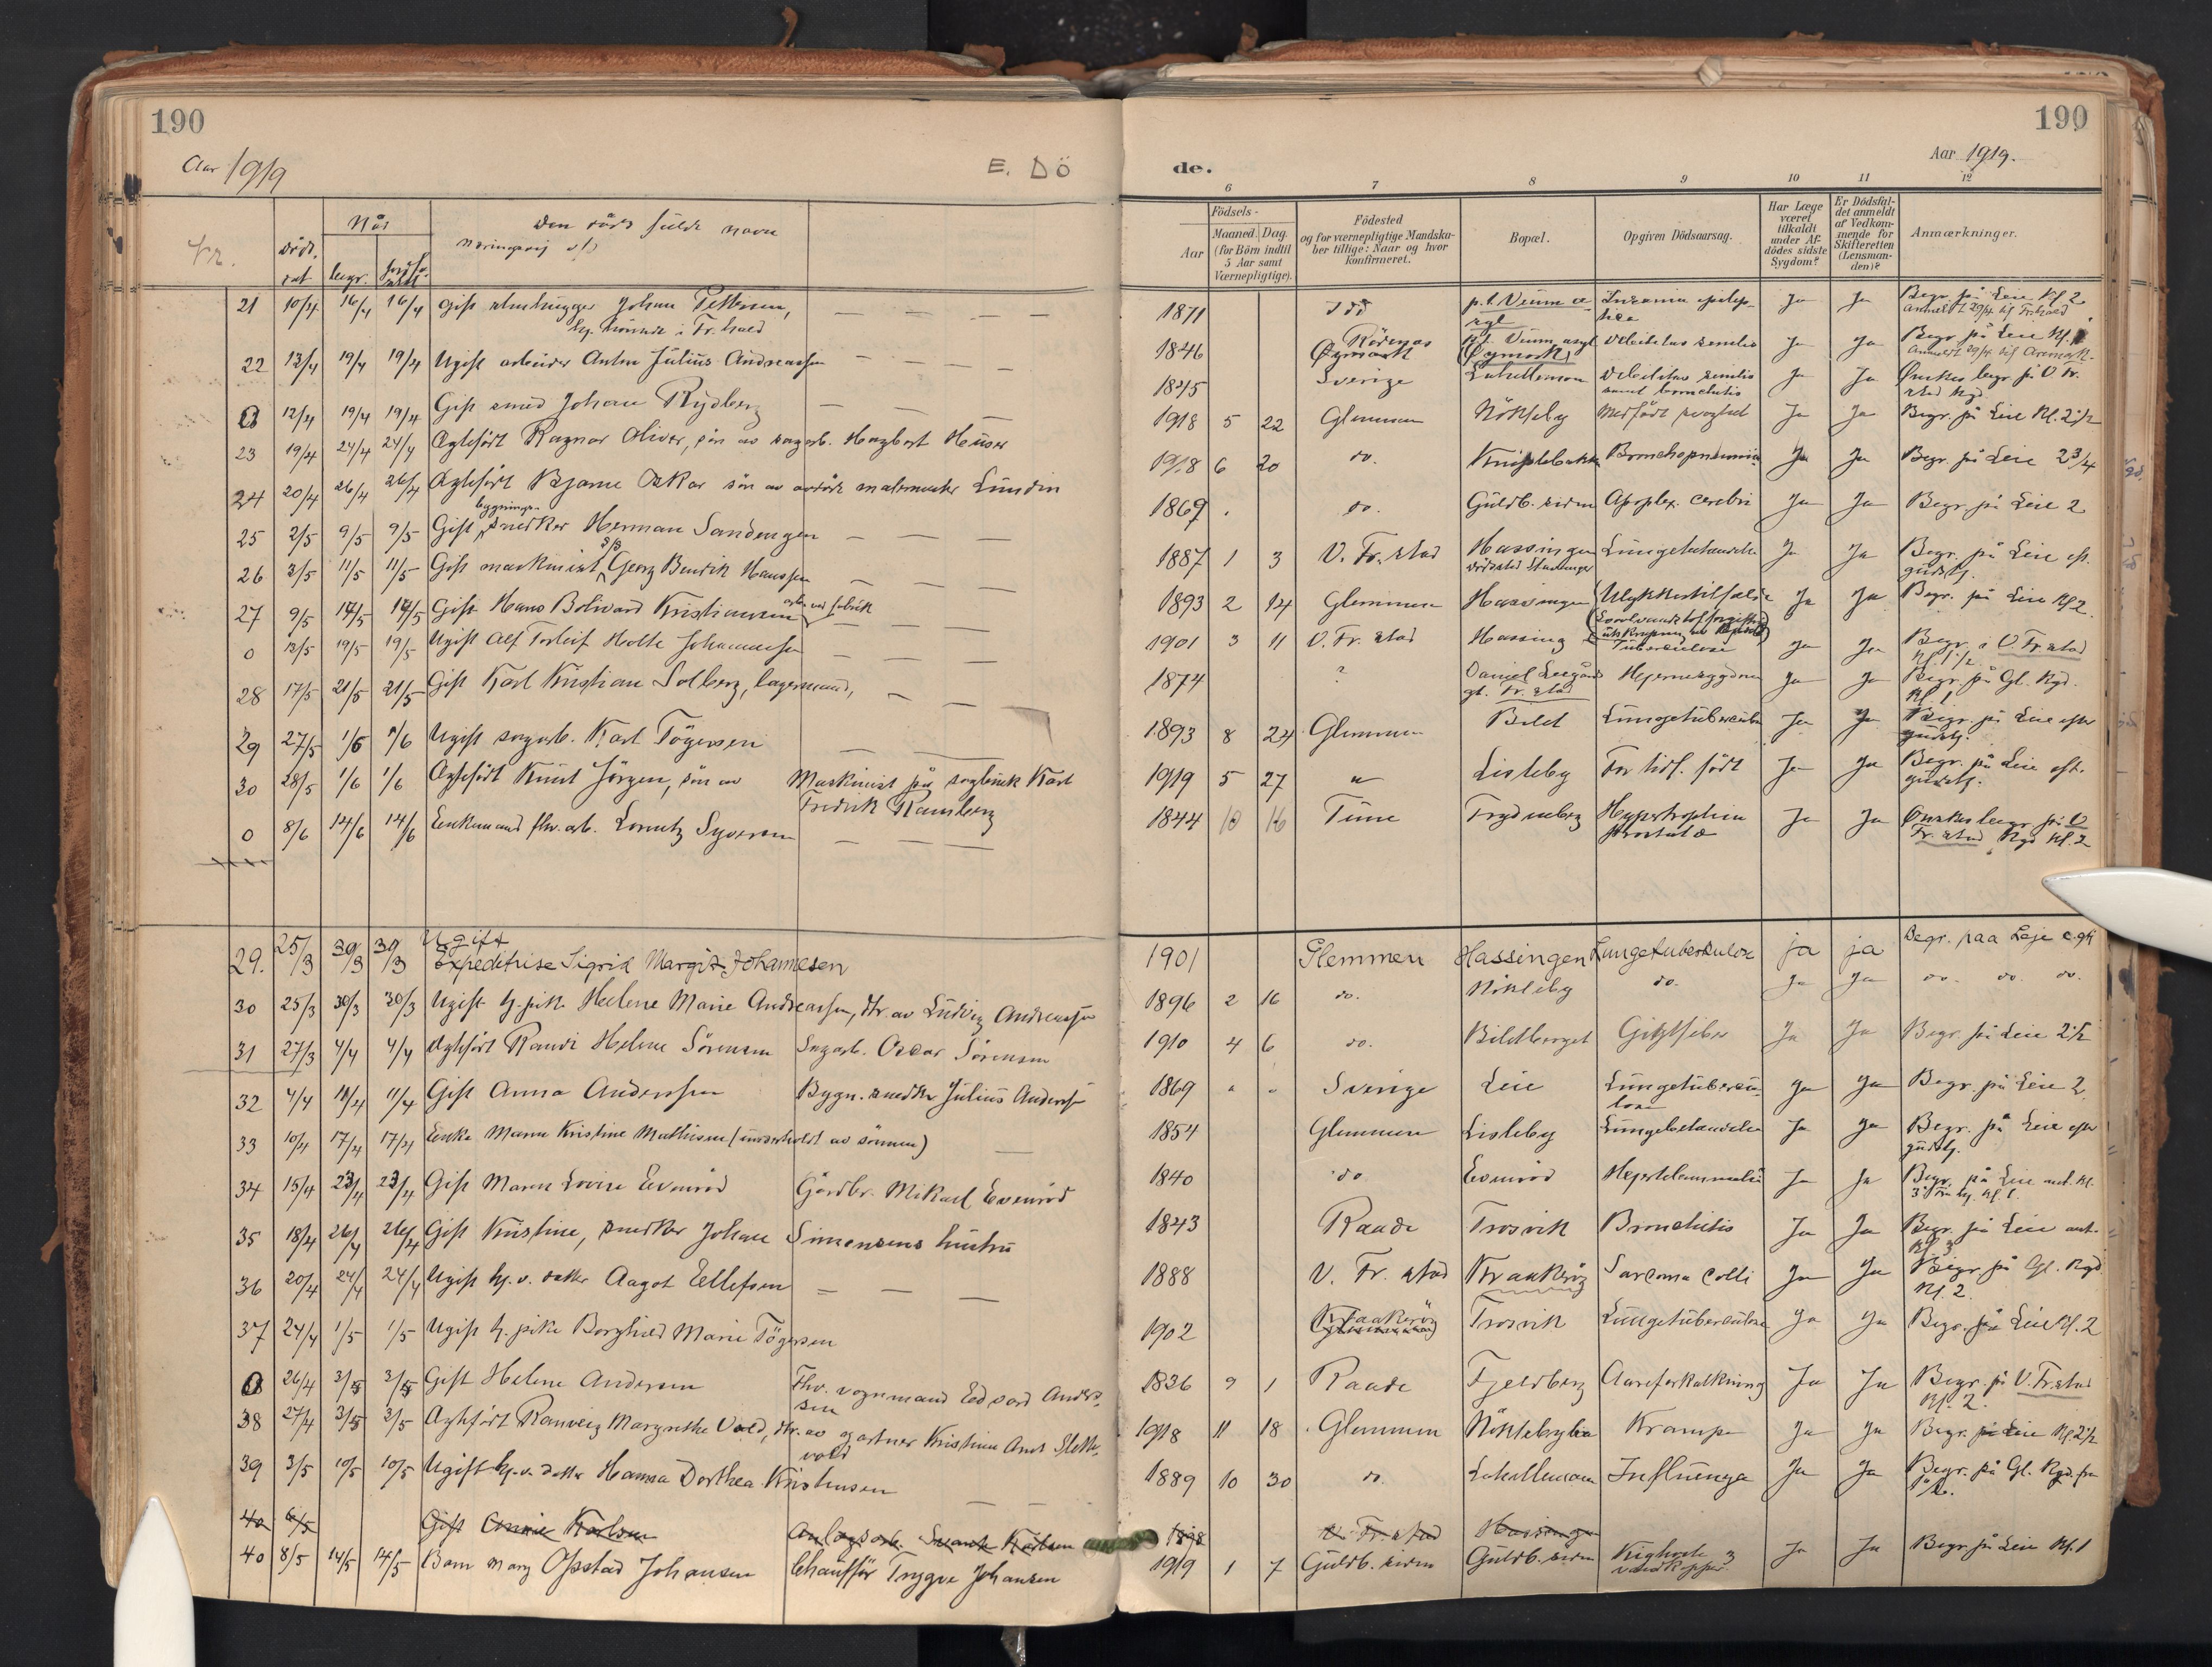 190
190
Aar 1919
E. Dö
de.
Aar 1919.
Nr.
död.
dat
Når
begr.
Den dödes fulde navn
næringsvej o/s
6
7
8
9
10
11
12
Födsels-
Aar
Maaned. Dag.
(for Börn indtil
5 Aar samt
Værnepligtige).
Födested
og for værnepligtige Mandska-
ber tillige: Naar og hvor
konfirmeret.
Bopæl.
Opgiven Dödsaarsag.
Har Læge
været
tilkaldt
under Af-
dödes sidste
Sygdom?
Er Dödsfal-
det anmeldt
af Vedkom-
mende for
Skifteretten
(Lensman-
den)?
Anmærkninger.
21 10/4 16/4 16/4 Gift stenhugger Johan Pettersen, 1871 Idd p.t. Veum a- Insania epilep- Ja Ja Begr. på Leie Kl. 2
i Fr.hald syl tica
22 13/4 19/4 19/4 Ugift arbeider Anton Julius Andreassen 1846 Rödenes p.t. Veum asyl Debilitas senilis Ja Ja Begr. på Leie Kl.
Øymark (Øymark)
0 12/4 19/4 19/4 Gift smed Johan Rydberg 1845 Sverige Labellemoen Debilitas senilis Ja Ja Ønskes begr. på V. Fr.
samt bronchitis stad Kgd.
23 19/4 24/4 24/4 Ægtefödt Ragnar Oliver, sön av sagarb. Hagbart Huser 1918 5 22 Glemmen Nökleby Medfödt svaghed Ja Ja Begr. på Leie Kl. 2 1/2
24 20/4 26/4 26/4 Ægtefödt Bjarne Oskar sön av avdöde malermester Lundin 1918 6 20 do. Kniplebakk. Bronchopneumoni Ja Ja Begr. på Leie 2 3/4
25 2/5 9/5 9/5 Gift bygnings- snedker Herman Sandengen 1869 do. Guldb. eidm Apoplex. cerebri Ja Ja Begr. på Leie 2
26 3/5 11/5 11/5 Gift maskinist D/S Georg Bendik Hanssen 1887 1 3 V. Fr.stad Hassingen Lungebetændelse Ja Ja Begr. på Leie eft.
dödssted Stavanger gudstj.
27 9/5 17/5 17/5 Gift Hans Bolivard Kristiansen arb. ved fabrik 1893 2 14 Glemmen Hassingen Ulykkestilfælde Ja Ja Begr. på Leie Kl 2
0 13/5 19/5 19/5 Ugift Alf Torleif Holte Johannesen 1901 3 11 V. Fr.stad Hassing Tuberculose Ja Ja Begr. i V. Fr.stad
Kl. 1 1/2
28 17/5 21/5 21/5 Gift Karl Kristian Solberg, lagermand, 1874 ? Daniel Leegårds Hjernesygdom Ja Ja Begr. på Gl. Kgd.
gt. Fr.stad Kl 1
29 27/5 1/6 1/6 Ugift sagarb. Karl Tögersen 1893 8 24 Glemmen Bildt Lungetubercul. Ja Ja Begr. på Leie efter
gudstj.
30 28/5 1/6 1/6 Ægtefödt Knut Jörgen, sön av Maskinist på sagbruk Karl 1919 5 27 " Lisleby For tidl. födt Ja Ja Begr. på Leie eft.
Fredrik Ramberg gudstj.
0 8/6 14/6 14/6 Enkemand fhv. arb. Lorentz Syversen 1844 10 16 Tune Trydneberg Hypertrophia Ja Ja Ønskes begr. på V
prostatæ Fr.stad Kgd Kl. 2
Ugift
29. 25/3 30/3 30/3 Expeditrise Sigrid Margit Johannesen 1901 Glemmen Hassingen Lungetuberkulose ja ja Begr. paa Leje e. gtj
30 25/3 30/3 30/3 Ugift tj. pike Helene Marie Andreassen, dtr. av Ludvig Andreassen 1896 2 16 do. Nökleby do. Ja Ja do. do. do.
31 27/3 4/4 4/4 Ægtefödt Randi Helene Sörensen Sagarb. Oscar Sörensen 1910 4 6 do. Bildtberget Gigtfeber Ja Ja Begr. på Leie 2 1/2
32 4/4 11/4 11/4 Gift Anna Anderssen Bygn. snedker Julius Anderssen 1869 " " Sverige Leie Lungetubercu- Ja Ja Begr. på Leie 2
lose
33 10/4 17/4 17/4 Enke Maren Kristine Mathisen (underholdt av sönnen) 1854 Glemmen Lisleby Lungebetændelse Ja Ja Begr. på Leie efter
gudstj.
34 15/4 23/4 23/4 Gift Maren Lovise Evenröd Gårdbr. Mikael Evenröd 1840 do Evenröd Hjertelammelse Ja Ja Begr. på Leie
35 18/4 26/4 26/4 Gift Kristine, snedker Johan Simensens hustru 1843 Raade Trosvik Bronchitis Ja Ja Begr. på Leie ant.
Kl 3
36 20/4 24/4 24/4 Ugift hj. v. datter Aagot Ellefsen 1888 V. Fr.stad Kraakeröy Sarcoma colli Ja Ja Begr på Gl. Kgd
Kl. 2.
37 24/4 1/5 1/5 Ugift tj. pike Borghild Marie Tögersen 1902 Kraakeröy Trosvik Lungetuberculose Ja Ja Begr. på Leie Kl. 2
0 26/4 3/5 3/5 Gift Helene Andersen Fhv. vognmand Edvard Ander- 1836 9 1 Raade Fjeldberg Aareforkalkning Ja Ja Begr. på V. Fr.stad
sen Kl. 2.
38 27/4 3/5 3/5 Ægtefödt Ranveig Margrethe Vold, dtr. av gartner Kristian Amt Slette- 1918 11 18 Glemmen Nöklebylia Krampe Ja Ja Begr. på Leie Kl. 2 1/2
vold
39 3/5 10/5 10/5 Ugift hj. v. datter Hanna Dorthea Kristensen 1889 10 30 do. Labellemoen Influenza Ja Ja Begr. på Gl. Kgd
40 6/5 Gift Annie Karlsen Anlægsarb. Svend Karlsen 1898 V. Fr.stad Hassingen
40 8/5 14/5 14/5 Barn Mary Opstad Johansen Chaufför Trygve Johansen 1919 1 7 Guldb. eidm Guldb. eidm Kighoste Ja Ja Begr på Leie Kl. 1
vandkopper